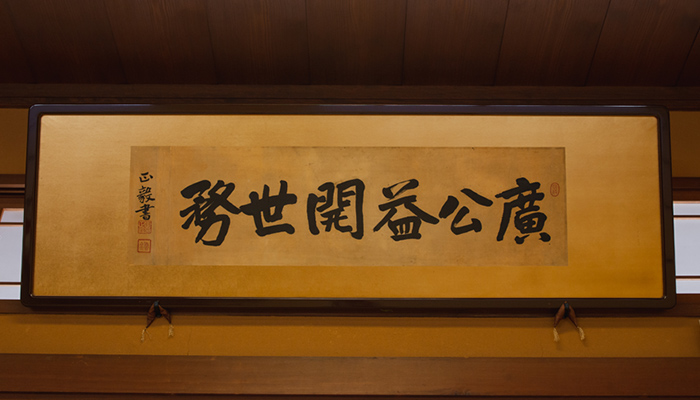 廣公益開世務
正毅書